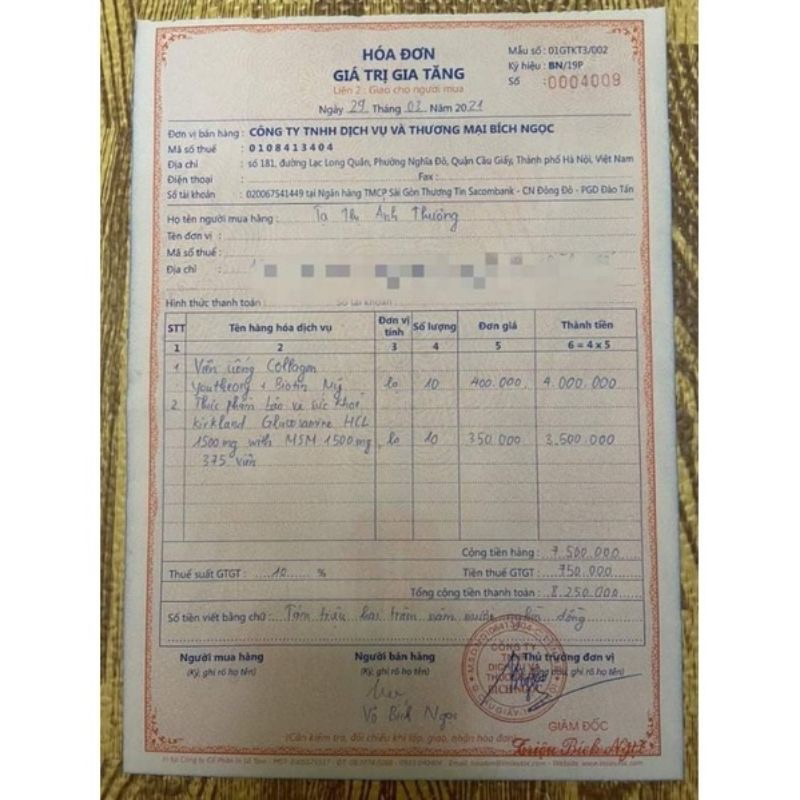 HÓA ĐƠN
GIÁ TRỊ GIA TĂNG
Liên 2 : Giao cho người mua
Ngày 29 Tháng 03 Năm 2021
Mẫu số : 01GTKT3/002
Ký hiệu : BN/19P
Số : 0004009
Đơn vị bán hàng : CÔNG TY TNHH DỊCH VỤ VÀ THƯƠNG MẠI BÍCH NGỌC
Mã số thuế : 0108413404
Địa chỉ : số 181, đường Lạc Long Quân, Phường Nghĩa Đô, Quận Cầu Giấy, Thành phố Hà Nội, Việt Nam
Điện thoại : Fax :
Số tài khoản : 020067541449 tại Ngân hàng TMCP Sài Gòn Thương Tín Sacombank - CN Đông Đô - PGD Đào Tấn
Họ tên người mua hàng : Tạ Thị Ánh Thường
Tên đơn vị :
Mã số thuế :
Địa chỉ
Hình thức thanh toán : Số tài khoản :
STT Tên hàng hóa dịch vụ Đơn vị tính Số lượng Đơn giá Thành tiền
1 2 3 4 5 6 = 4 x 5
1 Viên uống Collagen
youtheory + Biotin Mỹ lọ 10 400.000 4.000.000
2 Thực phẩm bảo vệ sức khoẻ
Kirkland Glucosamine HCL
1500mg with MSM 1500mg lọ 10 350.000 3.500.000
375 viên
Cộng tiền hàng : 7.500.000
Thuế suất GTGT : 10 % Tiền thuế GTGT : 750.000
Tổng cộng tiền thanh toán : 8.250.000
Số tiền viết bằng chữ : Tám triệu hai trăm năm mươi nghìn đồng
Người mua hàng Người bán hàng Thủ trưởng đơn vị
(Ký, ghi rõ họ tên) (Ký, ghi rõ họ tên)
CÔNG TY
TNHH
DỊCH VỤ VÀ
THƯƠNG MẠI
BÍCH NGỌC
Võ Bích Ngọc
GIÁM ĐỐC
Triệu Bích Ngọc
(Cần kiểm tra, đối chiếu khi lập, giao, nhận hóa đơn)